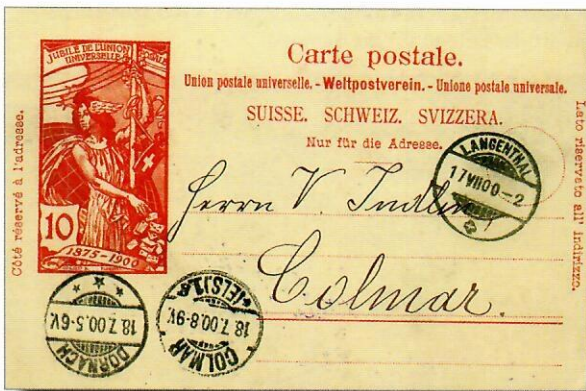 JUBILÉ DE L'UNION
UNIVERSELLE
10
1875-1900
Carte postale.
Union postale universelle. - Weltpostverein. - Unione postale universale.
SUISSE. SCHWEIZ. SVIZZERA.
Nur für die Adresse.
Côté réservé à l'adresse.
Lato riservato all' indirizzo.
LANGENTHAL
17 VII 00 - 2
Herrn V.
Colmar.
DORNACH
18.7.00.5-6V.
COLMAR
(ELS)
18.7.00.8-9V.